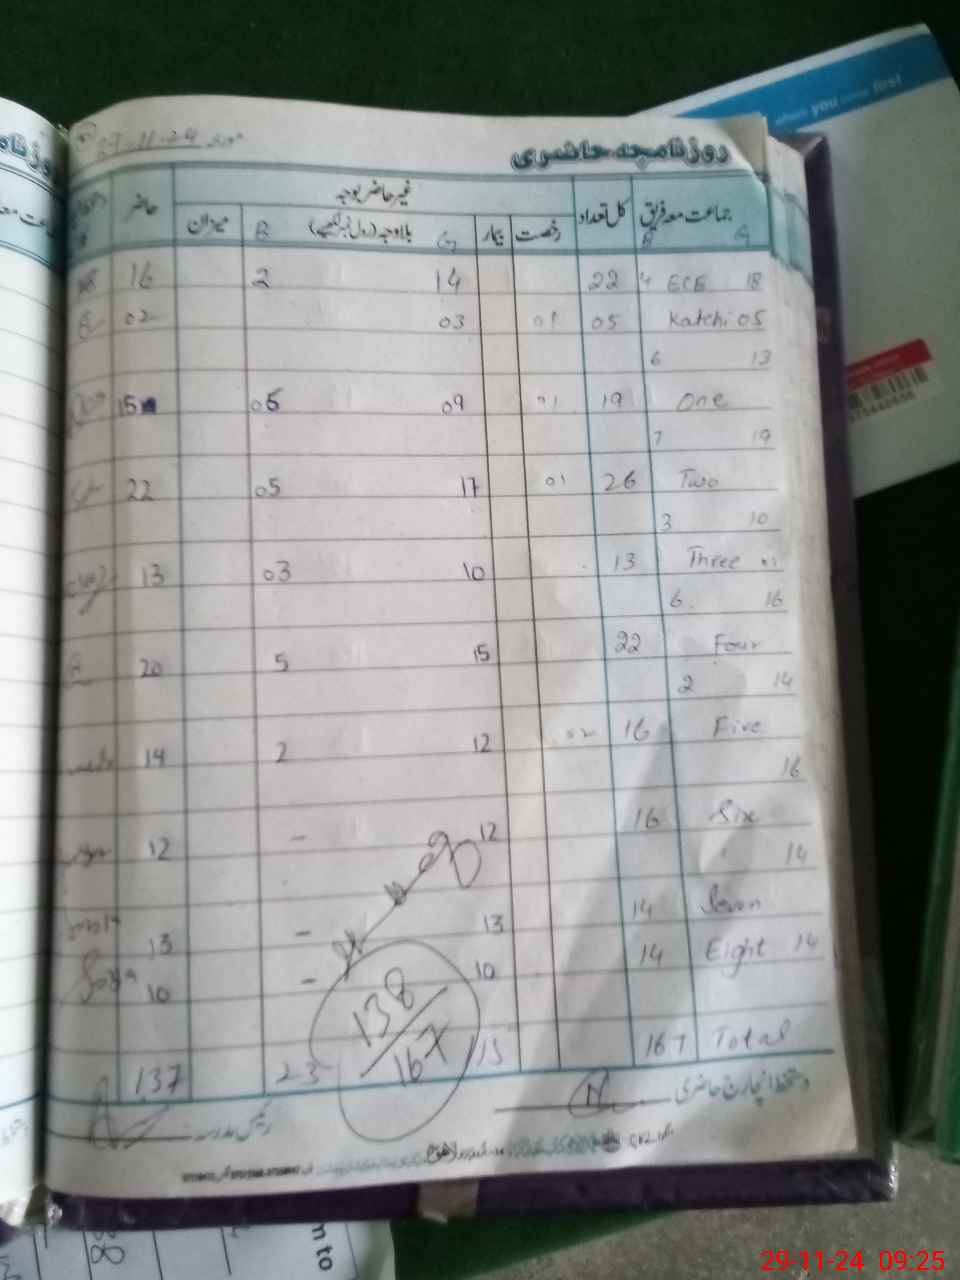 where you come first
29-11-24 مورخہ
روزنامچہ حاضری
جماعت معہ فریق کل تعداد غیر حاضر بوجہ حاضر
B G رخصت بیمار G بلاوجہ (رول نمبر لکھیے) B میزان
4 ECE 18 22 14 2 16
Katchi 05 05 01 03 02
6 13
One 19 01 09 05 15
7 19
Two 26 01 17 05 22
3 10
Three 13 10 03 13
6 16
Four 22 15 5 20
2 14
Five 16 02 12 2 14
16
Six 16 12 - 12
14
Seven 14 13 - 13
Eight 14 14 10 - 10
Total 167 115 23 137
138/167
دستخط انچارج حاضری
رئیس مدرسہ
m to
29-11-24 09:25